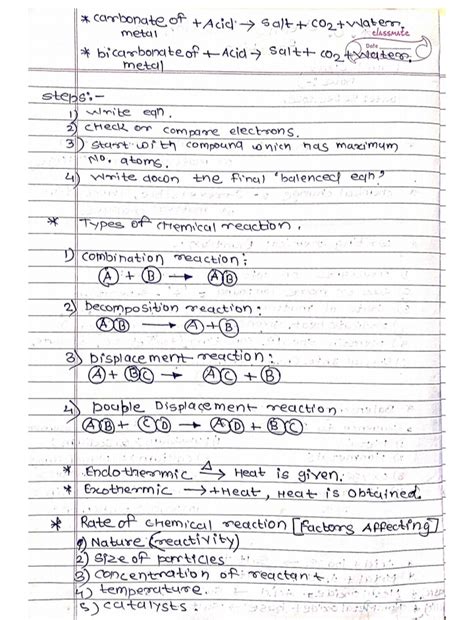 * carbonate of + Acid → salt + CO2 + Water.
metal
classmate
Date
* bicarbonate of + Acid → salt + CO2 + Water.
metal
steps:-
1) write eqn.
2) check or compare electrons.
3) start with compound which has maximum
No. atoms.
4) write down the final 'balenced eqn'
* Types of chemical reaction.
1) combination reaction:
A + B → AB
2) Decomposition reaction:
AB → A + B
3) Displacement reaction:
A + BC → AC + B
4) Double Displacement reaction
AB + CD → AD + BC
* Endothermic Δ→ Heat is given.
* Exothermic → +Heat, Heat is obtained.
* Rate of chemical reaction [Factors Affecting]
1) Nature (reactivity)
2) size of particles
3) concentration of reactant.
4) temperature.
5) catalysts.